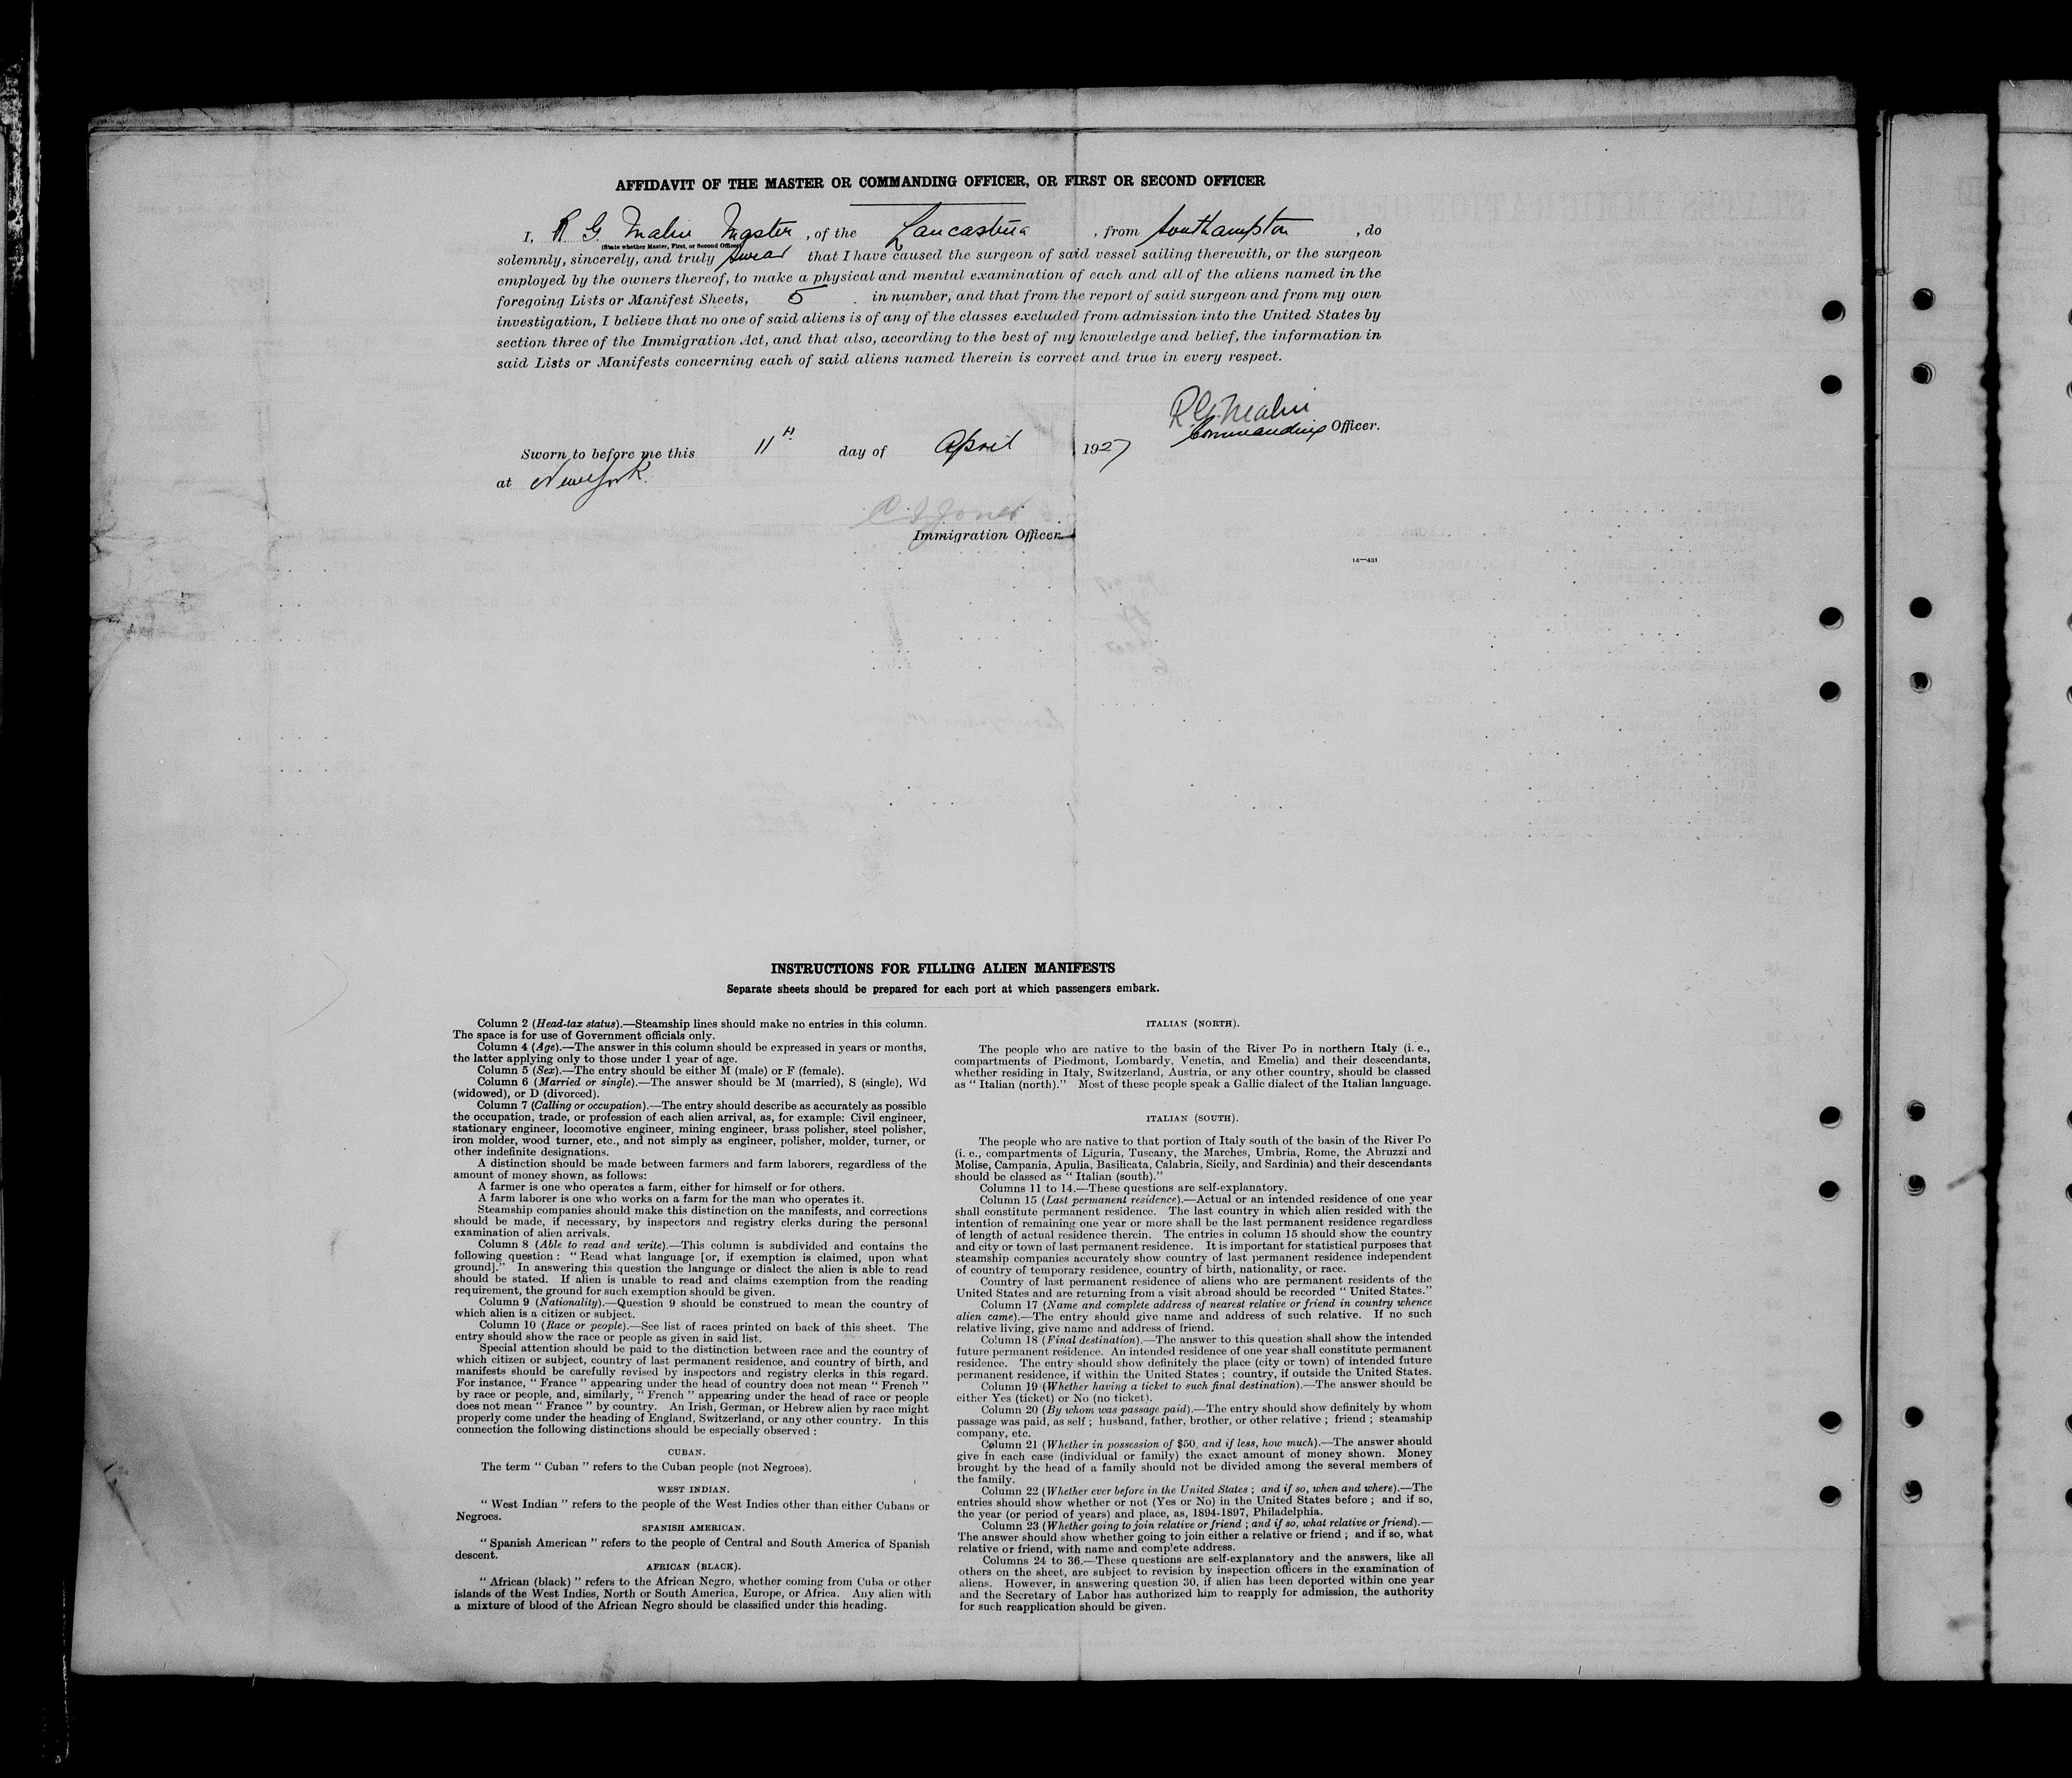 AFFIDAVIT OF THE MASTER OR COMMANDING OFFICER, OR FIRST OR SECOND OFFICER
I, R. G. Malin Master, of the Lancastria, from Southampton, do
(State whether Master, First, or Second Officer)
solemnly, sincerely, and truly swear that I have caused the surgeon of said vessel sailing therewith, or the surgeon
employed by the owners thereof, to make a physical and mental examination of each and all of the aliens named in the
foregoing Lists or Manifest Sheets, 5 in number, and that from the report of said surgeon and from my own
investigation, I believe that no one of said aliens is of any of the classes excluded from admission into the United States by
section three of the Immigration Act, and that also, according to the best of my knowledge and belief, the information in
said Lists or Manifests concerning each of said aliens named therein is correct and true in every respect.
R. G. Malin
Commanding Officer.
Sworn to before me this 11th day of April 1927
at New York.
Jones
Immigration Officer.
14—451
INSTRUCTIONS FOR FILLING ALIEN MANIFESTS
Separate sheets should be prepared for each port at which passengers embark.
Column 2 (Head-tax status).—Steamship lines should make no entries in this column.
The space is for use of Government officials only.
Column 4 (Age).—The answer in this column should be expressed in years or months,
the latter applying only to those under 1 year of age.
Column 5 (Sex).—The entry should be either M (male) or F (female).
Column 6 (Married or single).—The answer should be M (married), S (single), Wd
(widowed), or D (divorced).
Column 7 (Calling or occupation).—The entry should describe as accurately as possible
the occupation, trade, or profession of each alien arrival, as, for example: Civil engineer,
stationary engineer, locomotive engineer, mining engineer, brass polisher, steel polisher,
iron molder, wood turner, etc., and not simply as engineer, polisher, molder, turner, or
other indefinite designations.
A distinction should be made between farmers and farm laborers, regardless of the
amount of money shown, as follows:
A farmer is one who operates a farm, either for himself or for others.
A farm laborer is one who works on a farm for the man who operates it.
Steamship companies should make this distinction on the manifests, and corrections
should be made, if necessary, by inspectors and registry clerks during the personal
examination of alien arrivals.
Column 8 (Able to read and write).—This column is subdivided and contains the
following question: "Read what language [or, if exemption is claimed, upon what
ground]." In answering this question the language or dialect the alien is able to read
should be stated. If alien is unable to read and claims exemption from the reading
requirement, the ground for such exemption should be given.
Column 9 (Nationality).—Question 9 should be construed to mean the country of
which alien is a citizen or subject.
Column 10 (Race or people).—See list of races printed on back of this sheet. The
entry should show the race or people as given in said list.
Special attention should be paid to the distinction between race and the country of
which citizen or subject, country of last permanent residence, and country of birth, and
manifests should be carefully revised by inspectors and registry clerks in this regard.
For instance, "France" appearing under the head of country does not mean "French"
by race or people, and, similarly, "French" appearing under the head of race or people
does not mean "France" by country. An Irish, German, or Hebrew alien by race might
properly come under the heading of England, Switzerland, or any other country. In this
connection the following distinctions should be especially observed:
CUBAN.
The term "Cuban" refers to the Cuban people (not Negroes).
WEST INDIAN.
"West Indian" refers to the people of the West Indies other than either Cubans or
Negroes.
SPANISH AMERICAN.
"Spanish American" refers to the people of Central and South America of Spanish
descent.
AFRICAN (BLACK).
"African (black)" refers to the African Negro, whether coming from Cuba or other
islands of the West Indies, North or South America, Europe, or Africa. Any alien with
a mixture of blood of the African Negro should be classified under this heading.
ITALIAN (NORTH).
The people who are native to the basin of the River Po in northern Italy (i. e.,
compartments of Piedmont, Lombardy, Venetia, and Emelia) and their descendants,
whether residing in Italy, Switzerland, Austria, or any other country, should be classed
as "Italian (north)." Most of these people speak a Gallic dialect of the Italian language.
ITALIAN (SOUTH).
The people who are native to that portion of Italy south of the basin of the River Po
(i. e., compartments of Liguria, Tuscany, the Marches, Umbria, Rome, the Abruzzi and
Molise, Campania, Apulia, Basilicata, Calabria, Sicily, and Sardinia) and their descendants
should be classed as "Italian (south)."
Columns 11 to 14.—These questions are self-explanatory.
Column 15 (Last permanent residence).—Actual or an intended residence of one year
shall constitute permanent residence. The last country in which alien resided with the
intention of remaining one year or more shall be the last permanent residence regardless
of length of actual residence therein. The entries in column 15 should show the country
and city or town of last permanent residence. It is important for statistical purposes that
steamship companies accurately show country of last permanent residence independent
of country of temporary residence, country of birth, nationality, or race.
Country of last permanent residence of aliens who are permanent residents of the
United States and are returning from a visit abroad should be recorded "United States."
Column 17 (Name and complete address of nearest relative or friend in country whence
alien came).—The entry should give name and address of such relative. If no such
relative living, give name and address of friend.
Column 18 (Final destination).—The answer to this question shall show the intended
future permanent residence. An intended residence of one year shall constitute permanent
residence. The entry should show definitely the place (city or town) of intended future
permanent residence, if within the United States; country, if outside the United States.
Column 19 (Whether having a ticket to such final destination).—The answer should be
either Yes (ticket) or No (no ticket).
Column 20 (By whom was passage paid).—The entry should show definitely by whom
passage was paid, as self; husband, father, brother, or other relative; friend; steamship
company, etc.
Column 21 (Whether in possession of $50, and if less, how much).—The answer should
give in each case (individual or family) the exact amount of money shown. Money
brought by the head of a family should not be divided among the several members of
the family.
Column 22 (Whether ever before in the United States; and if so, when and where).—The
entries should show whether or not (Yes or No) in the United States before; and if so,
the year (or period of years) and place, as, 1894-1897, Philadelphia.
Column 23 (Whether going to join relative or friend; and if so, what relative or friend).—
The answer should show whether going to join either a relative or friend; and if so, what
relative or friend, with name and complete address.
Columns 24 to 36.—These questions are self-explanatory and the answers, like all
others on the sheet, are subject to revision by inspection officers in the examination of
aliens. However, in answering question 30, if alien has been deported within one year
and the Secretary of Labor has authorized him to reapply for admission, the authority
for such reapplication should be given.